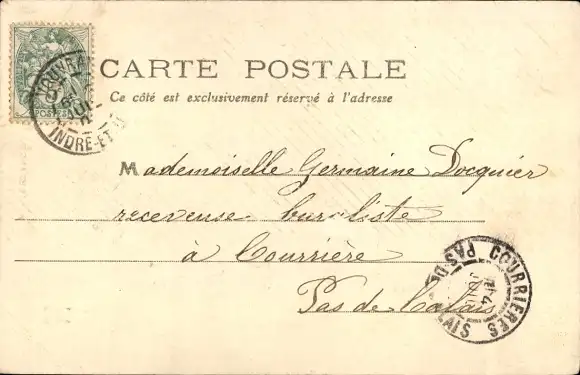 CARTE POSTALE
Ce côté est exclusivement réservé à l'adresse
POSTES
VOUVRAY
INDRE-ET-
Mademoiselle Germaine Docquier
receveuse buraliste
à Courrière
Pas de Calais
COURRIERES
PAS-DE-CALAIS